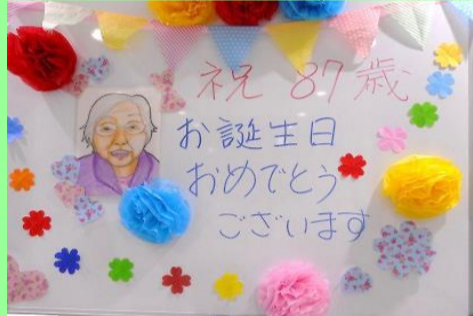 祝 87歳
お誕生日
おめでとう
ございます